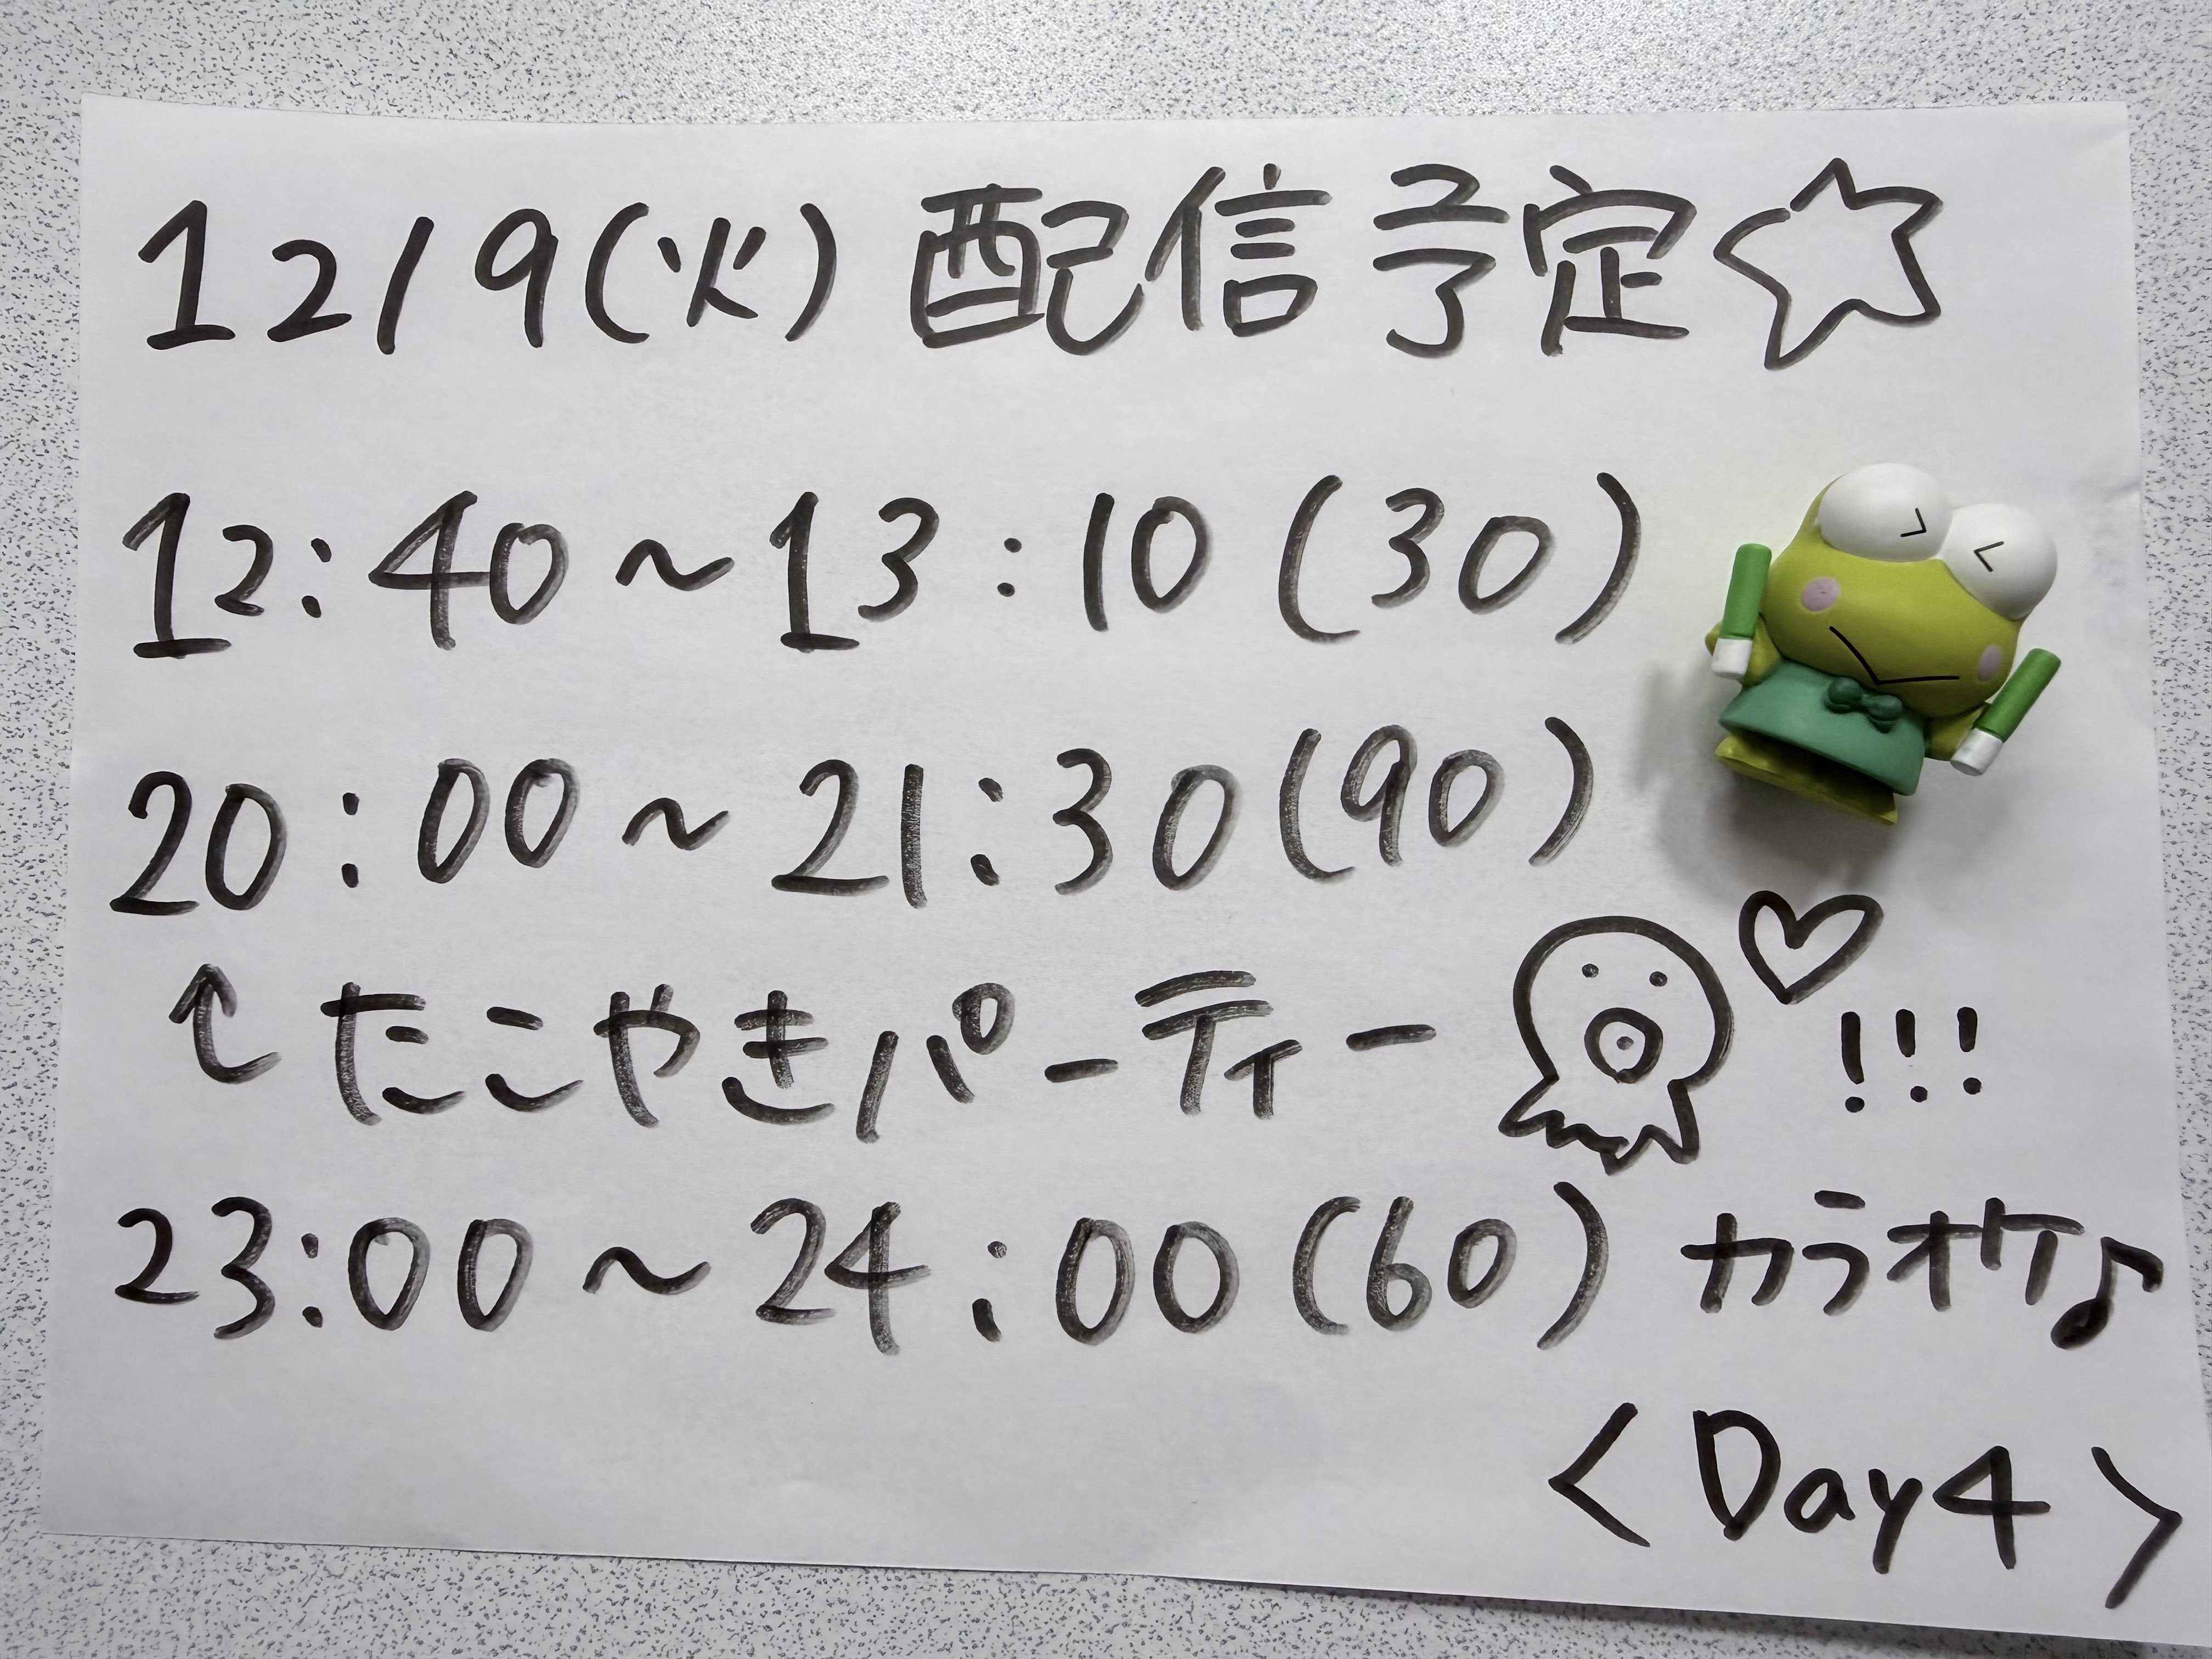 12/9(火)配信予定☆
12:40~13:10(30)
20:00~21:30(90)
↑たこやきパーティー♡!!!
23:00~24:00(60)カラオケ♪
<Day4>